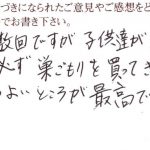 づきになられたご意見やご感想をど
でお書き下さい。
数回ですが子供達が
必ず巣ごもりを買ってき
よいところが最高で